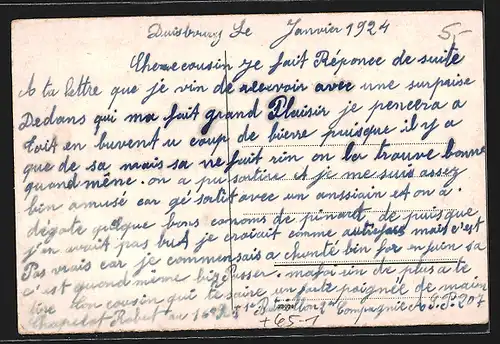 Duisbourg Le Janvier 1924
5,-
Cher cousin je fait Réponce de suite
A ta lettre que je vin de recevoir avec une surprise
Dedans qui ma fait grand Plaisir je pencera a
toit en buvent u coup de bierre puisque il y a
que de sa mais sa ne fait rin on la trouve bonne
quand même. on a pu sortire et je me suis assez
bin amusé car je sortit avec un anssiain et on a.
dégote quelque bons canons de pinart, de puisque
j'en avait pas but je croiait comme autrefois mais c'est
Pas vrais car je commensais a chanté bin for enfin sa
c'est quand même bin Passer. ma foi rin de plus a te
dire Ton cousin qui te saire un forte poignée de main
Chapelot Robert au 16e 1e Bataillon 2e Compagnie S.P. 207
+65-1